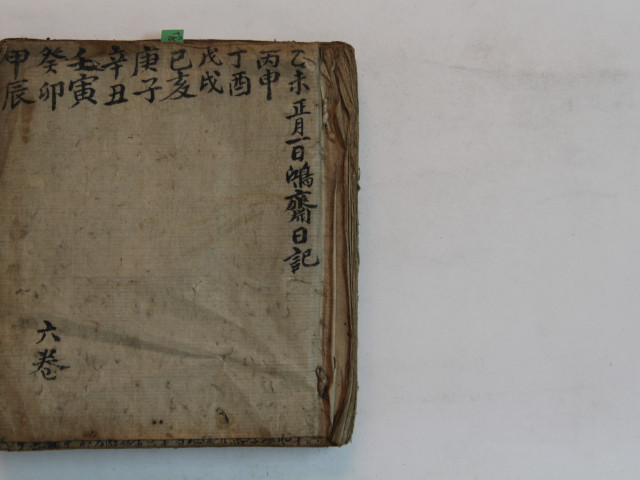 乙未正月一日鴻齋日記
丙申
丁酉
戊戌
己亥
庚子
辛丑
壬寅
癸卯
甲辰
六卷